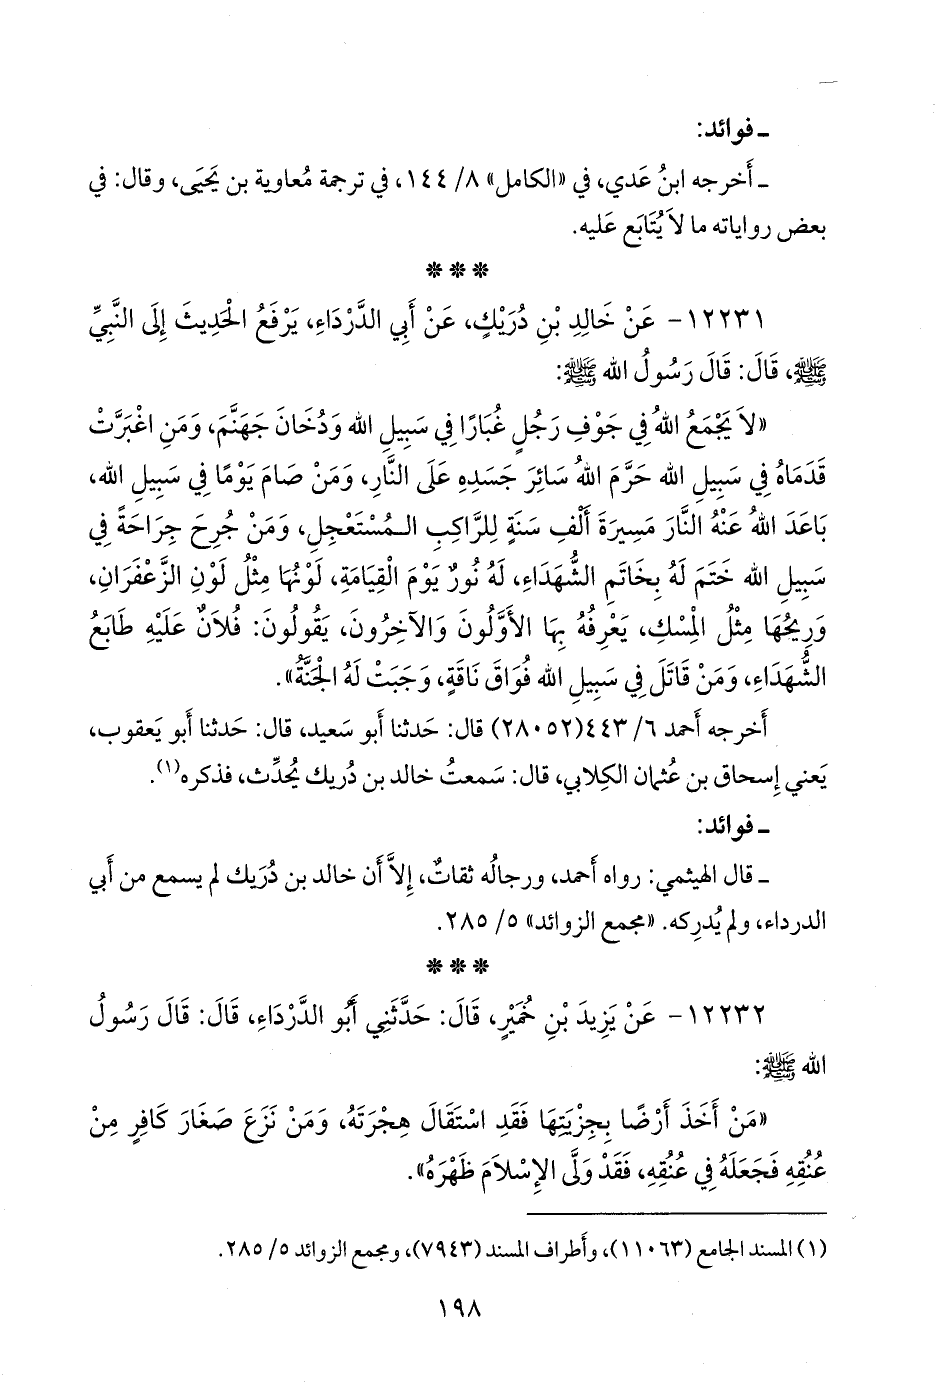 ـ فوائد:
ـ أَخرجه ابنُ عَدي، في «الكامل» ٨/ ١٤٤، في ترجمة مُعاوية بن يَحيَى، وقال: في
بعض رواياته ما لاَ يُتَابَع عَليه.
* * *
١٢٢٣١- عَنْ خَالِدِ بْنِ دُرَيْكٍ، عَنْ أَبِي الدَّرْدَاءِ، يَرْفَعُ الْحَدِيثَ إِلَى النَّبِيِّ
ﷺ، قَالَ: قَالَ رَسُولُ الله ﷺ:
«لاَ يَجْمَعُ اللهُ فِي جَوْفِ رَجُلٍ غُبَارًا فِي سَبِيلِ الله وَدُخَانَ جَهَنَّمَ، وَمَنِ اغْبَرَّتْ
قَدَمَاهُ فِي سَبِيلِ الله حَرَّمَ اللهُ سَائِرَ جَسَدِهِ عَلَى النَّارِ، وَمَنْ صَامَ يَوْمًا فِي سَبِيلِ الله،
بَاعَدَ اللهُ عَنْهُ النَّارَ مَسِيرَةَ أَلْفِ سَنَةٍ لِلرَّاكِبِ الـمُسْتَعْجِلِ، وَمَنْ جُرِحَ جِرَاحَةً فِي
سَبِيلِ الله خَتَمَ لَهُ بِخَاتَمِ الشُّهَدَاءِ، لَهُ نُورٌ يَوْمَ الْقِيَامَةِ، لَوْنُهَا مِثْلُ لَوْنِ الزَّعْفَرَانِ،
وَرِيحُهَا مِثْلُ الْمِسْكِ، يَعْرِفُهُ بِهَا الأَوَّلُونَ وَالآخِرُونَ، يَقُولُونَ: فُلاَنٌ عَلَيْهِ طَابَعُ
الشُّهَدَاءِ، وَمَنْ قَاتَلَ فِي سَبِيلِ الله فُوَاقَ نَاقَةٍ، وَجَبَتْ لَهُ الْجَنَّةُ».
أَخرجه أَحمد ٦/ ٤٤٣(٢٨٠٥٢) قال: حَدثنا أَبو سَعيد، قال: حَدثنا أَبو يَعقوب،
يَعني إِسحاق بن عُثمان الكِلابي، قال: سَمعتُ خالد بن دُريك يُحدِّث، فذكره(١).
ـ فوائد:
ـ قال الهيثمي: رواه أَحمد، ورجالُه ثقاتٌ، إِلاَّ أَن خالد بن دُرَيك لم يسمع من أَبي
الدرداء، ولم يُدرِكه. «مجمع الزوائد» ٥/ ٢٨٥.
* * *
١٢٢٣٢- عَنْ يَزِيدَ بْنِ خُمَيْرٍ، قَالَ: حَدَّثَنِي أَبُو الدَّرْدَاءِ، قَالَ: قَالَ رَسُولُ
الله ﷺ:
«مَنْ أَخَذَ أَرْضًا بِجِزْيَتِهَا فَقَدِ اسْتَقَالَ هِجْرَتَهُ، وَمَنْ نَزَعَ صَغَارَ كَافِرٍ مِنْ
عُنُقِهِ فَجَعَلَهُ فِي عُنُقِهِ، فَقَدْ وَلَّى الإِسْلاَمَ ظَهْرَهُ».
(١) المسند الجامع (١١٠٦٣)، وأَطراف المسند (٧٩٤٣)، ومجمع الزوائد ٥/ ٢٨٥.
١٩٨